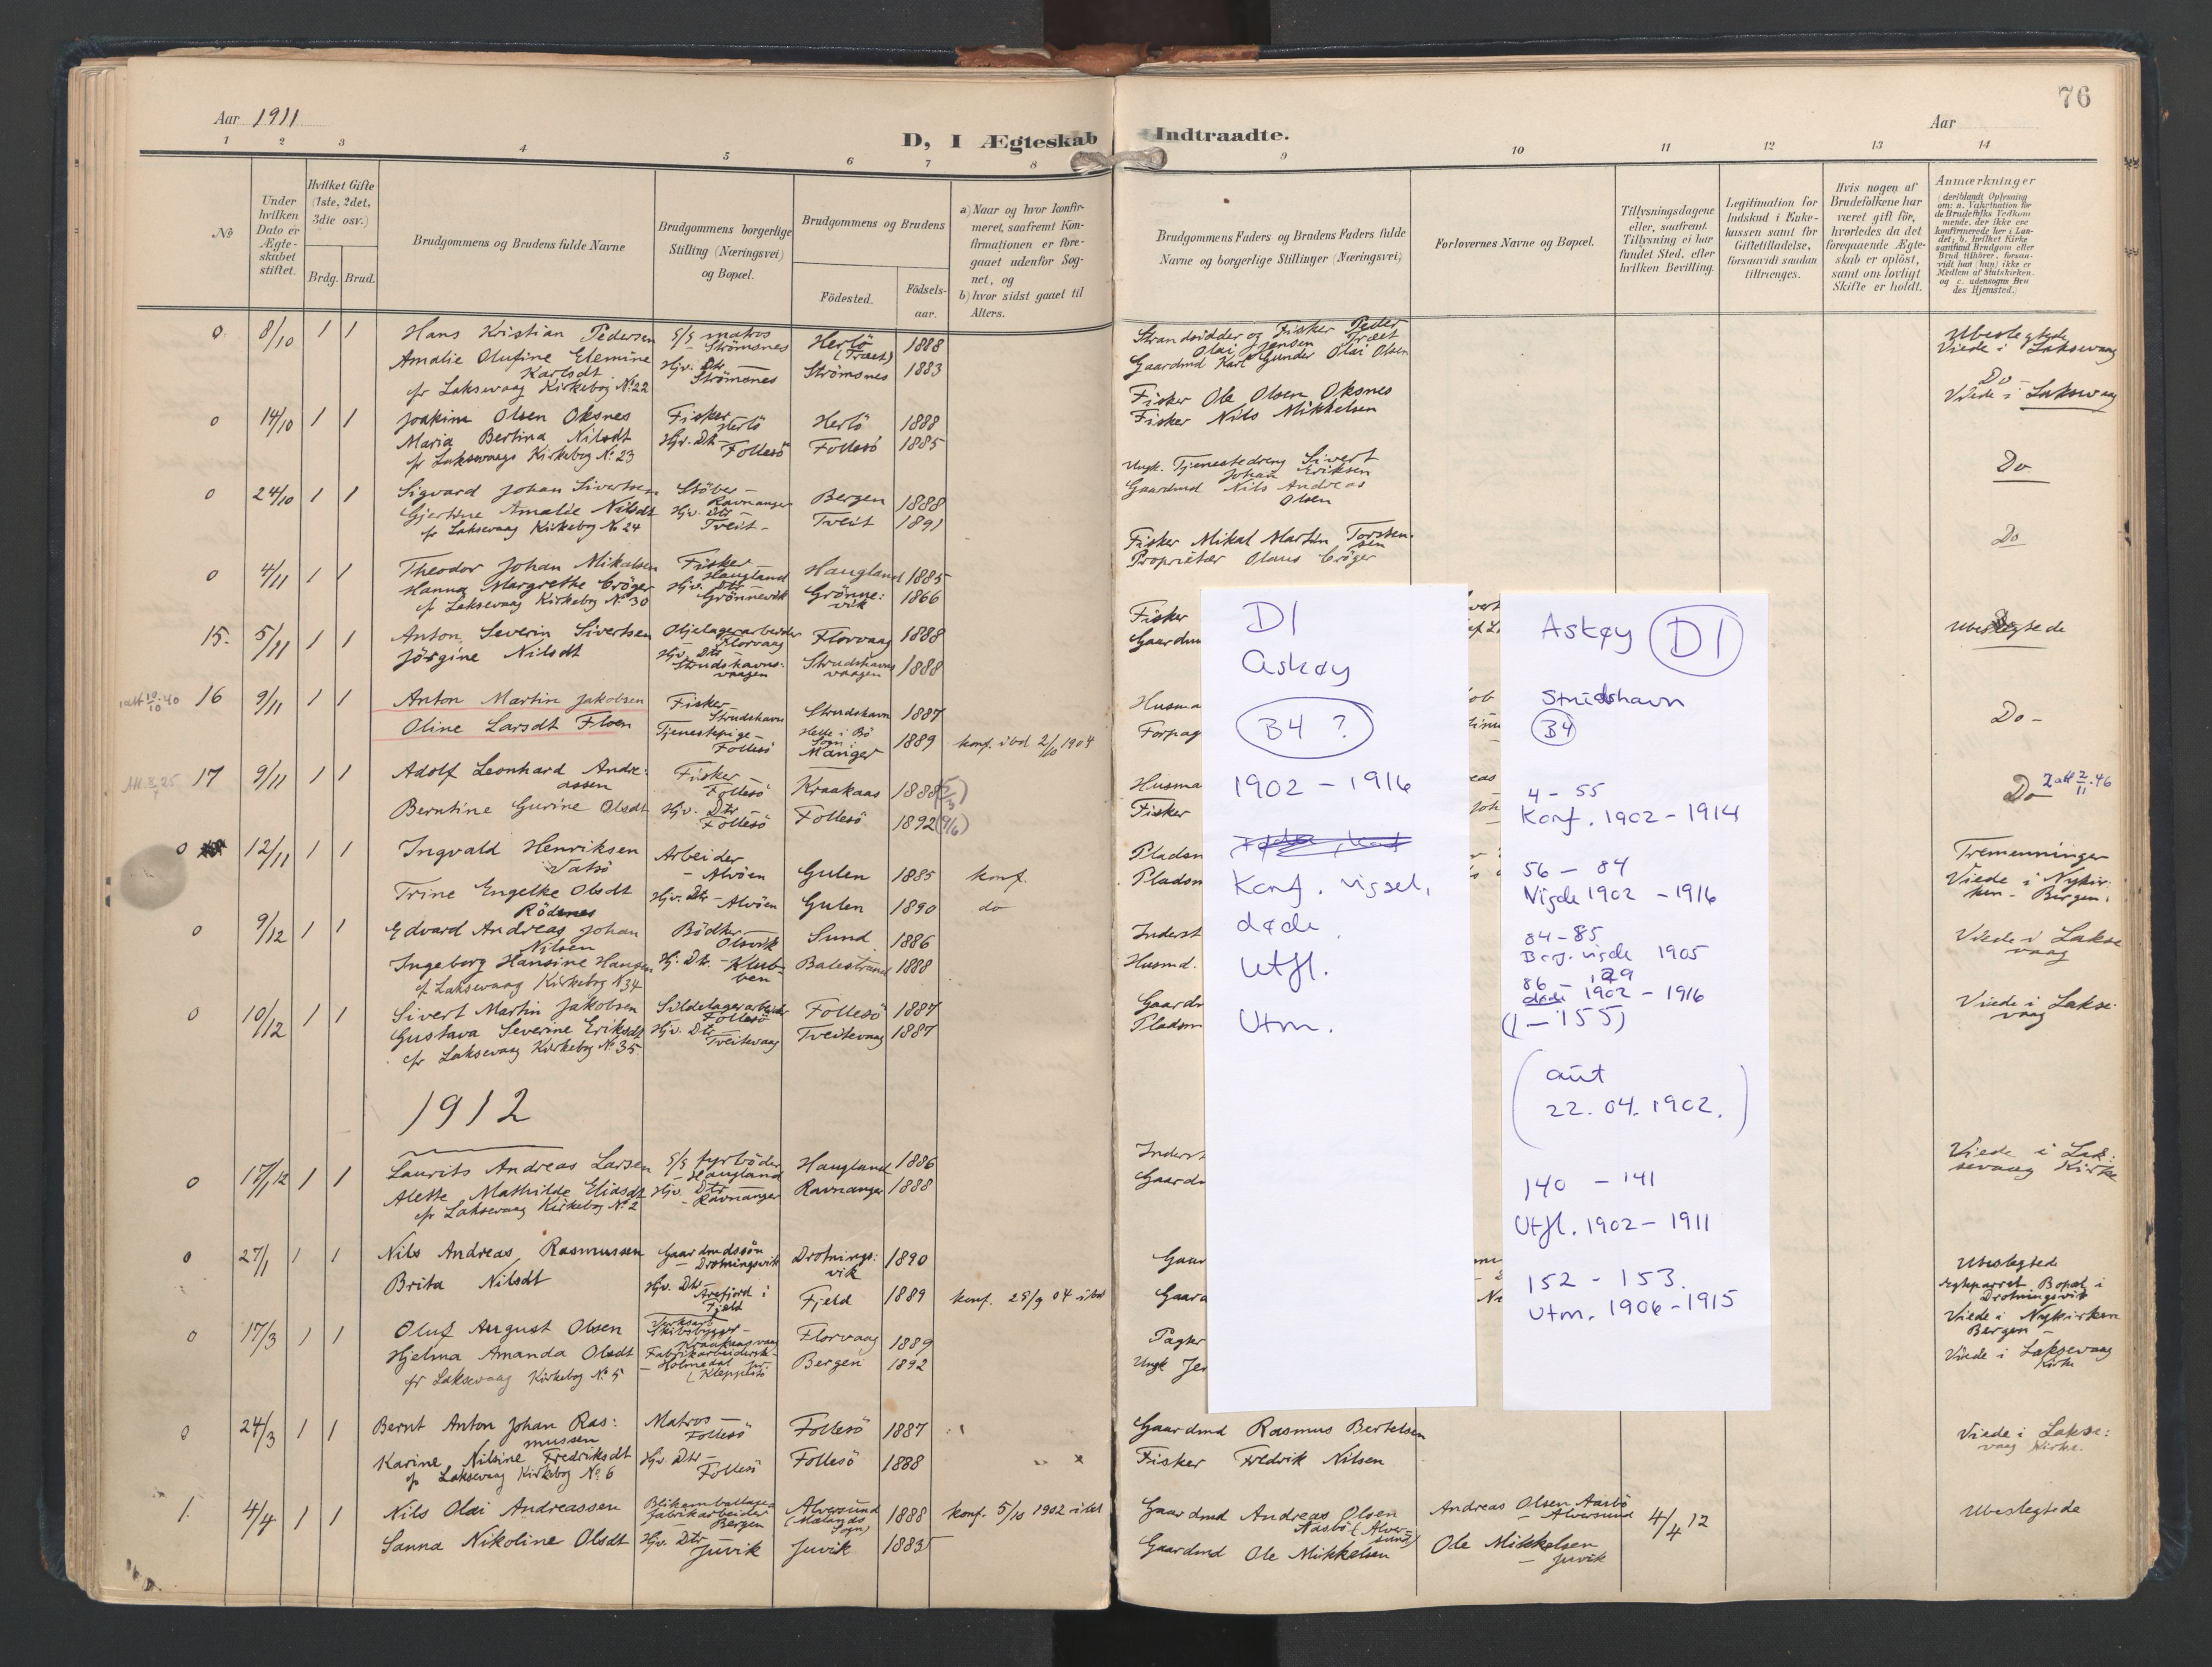 76
Aar 1911
D, I Ægteskab Indtraadte.
Aar
1 2 3 4 5 6 7 8 9 10 11 12 13 14
No
Under hvilken Dato er Ægteskabet stiftet.
Hvilket Gifte (1ste, 2det, 3die osv.)
Brdg. Brud.
Brudgommens og Brudens fulde Navne
Brudgommens borgerlige Stilling (Næringsvei) og Bopæl.
Brudgommens og Brudens
Födested.
Födselsaar.
a) Naar og hvor konfirmeret, saafremt Konfirmationen er foregaaet udenfor Sognet, og
b) hvor sidst gaaet til Alters.
Brudgommens Faders og Brudens Faders fulde Navne og borgerlige Stillinger (Næringsvei)
Forlovernes Navne og Bopæl.
Tillysningsdagene eller, saafremt Tillysning ei har fundet Sted, efter hvilken Bevilling.
Legitimation for Indskud i Enkekassen samt for Giftetilladelse, forsaavidt saadan tiltrænges.
Hvis nogen af Brudefolkene har været gift för, hvorledes da det foregaaende Ægteskab er oplöst, samt om lovligt Skifte er holdt.
Anmærkninger
0 8/10 1 1 Hans Kristian Pedersen S/S matros – Strömsnes Herlö (Træet) 1888
Strandsidder og Fisker Peder Olai Jensen Træet
Ubeslegtede Viede i Laksevaag
Amalie Olufine Elemine Karlsdt Hjv. Dtr – Strömsnes Strömsnes 1883
Gaardmd Karl Gunder Olai Olsen
cfr Laksevaag Kirkebog No 22
0 14/10 1 1 Joakim Olsen Oksnes Fisker – Herlö Herlö 1888
Fisker Ole Olsen Oksnes
Do – Viede i Laksevaag
Maria Bertina Nilsdt Hjv. Dtr – Follesö Follesö 1885
Fisker Nils Mikkelsen
cfr Laksevaags Kirkebog No 23
0 24/10 1 1 Sigvard Johan Sivertsen Stöber – Ravnanger Bergen 1888
Ungk. Tjenestedreng Sivert Johan Eriksen
Do
Gjertine Amalie Nilsdt Hjv. Dtr – Tveit Tveit 1891
Gaardmd Nils Andreas Olsen
cfr Laksevaag Kirkebog No 24
0 4/11 1 1 Theodor Johan Mikalsen Fisker – Haugland Haugland 1885
Fisker Mikal Martin Torstensen
Do
Hanna Margrethe Cröger Hjv. Dtr Grönnevik Grönnevik 1866
Proprietær Olaus Cröger
cfr Laksevaag Kirkebog No 30
15. 5/11 1 1 Anton Severin Sivertsen Oljelagerarbeider Florvaag Florvaag 1888
Fisker
Ubeslegtede
Jörgine Nilsdt Hjv. Dtr Strudshavnsvaagen Strudshavnsvaagen 1888
Gaardm
16 9/11 1 1 Anton Martin Jakobsen Fisker – Strudshavn Strudshavn 1887
Husma
Do –
Oline Larsdt Floen Tjenestepige – Follesö Helle i Bö Sogn Manger 1889 konf. ibd 2/10 1904
Forpag
17 9/11 1 1 Adolf Leonhard Andreassen Fisker – Follesö Kraakaas 1888 (5/3)
Husma
Do
2 att 2/11.46
Berntine Gurine Olsdt Hjv. Dtr – Follesö Follesö 1892 (9/6)
Fisker
0 12/11 1 1 Ingvald Henriksen Arbeider – Alvöen Gulen 1885 konf.
Pladsm
Tremenninger Viede i Nykirken – Bergen.
Trine Engelke Olsdt Rödenes Hjv. Dtr – Alvöen Gulen 1890 do
Pladsm
0 9/12 1 1 Edvard Andreas Johan Nilsen Bödker – Olsvik Sund 1886
Inderst
Viede i Laksevaag
Ingeborg Hansine Haugen Hj. Dtr. – Klubben Balestrand 1888
Husmd.
cf Laksevaag Kirkebog N 34
0 10/12 1 1 Sivert Martin Jakobsen Sildelagerarbeider Follesö Follesö 1887
Gaardm
Viede i Laksevaag
Gustava Severine Eriksdt Hjv. Dtr Tveitevaag Tveitevaag 1887
Pladsm
cfr Laksevaag Kirkebog No 35
1912
0 17/1 12 1 1 Laurits Andreas Larsen S/S fyrböder – Haugland Haugland 1886
Inderst
Viede i Laksevaag Kirke
Alette Mathilde Eliasdt Hjv. Dtr – Ravnanger Ravnanger 1888
Gaardm
cfr Laksevaag Kirkebog No 2
0 27/1 1 1 Nils Andreas Rasmussen Gaardmdssön – Drotningsvik Drotningsvik 1890
Gaar
Ubeslegtede
Egteparret Bopæl i Drotningsvik
Viede i Nykirken Bergen –
Brita Nilsdt Hjv. Dtr – Arefjord i Fjeld Fjeld 1889 konf. 25/9 04 ibd
Gaard
0 17/3 1 1 Oluf August Olsen Skibsbygger – Kraakaasvaag Florvaag 1889
Viede i Laksevaag Kirke
Hjelma Amanda Olsdt Fabrikarbeidersk. – Holmedal pr. Kleppestö Bergen 1892
Ungk Jen
cfr Laksevaag Kirkebog No 5
0 24/3 1 1 Bernt Anton Johan Rasmussen Matros – Follesö Follesö 1887
Gaardmd Rasmus Bertelsen
Viede i Laksevaag Kirke.
Karine Nilsine Fredriksdt Hjv. Dtr – Follesö Follesö 1888
Fisker Fredrik Nilsen
cfr Laksevaag Kirkebog No 6
1. 4/4 1 1 Nils Olai Andreassen Blikemballage fabrikarbeider Bergen Alversund (Mælands Sogn) 1888 konf. 5/10 1902 ibd
Gaardmd Andreas Olsen Aasbö (Alversund) Andreas Olsen Aasbö – Alversund 4/4 12
Ubeslegtede
Sanna Nikoline Olsdt Hjv. Dtr Juvik Juvik 1885
Gaardmd Ole Mikkelsen Ole Mikkelsen – Juvik
D1
Askøy
B4 ?
1902 – 1916
Konf. vigsel,
døde
Utfl.
Utm.
Askøy D1
Strudshavn
B4
4 – 55
Konf. 1902 – 1914
56 – 84
Vigde 1902 – 1916
84 – 85
Borg. vigde 1905
86 – 129
døde 1902 – 1916
(1 – 155)
(aut
22.04.1902.)
140 – 141
Utfl. 1902 – 1911
152 – 153.
Utm. 1906 – 1915